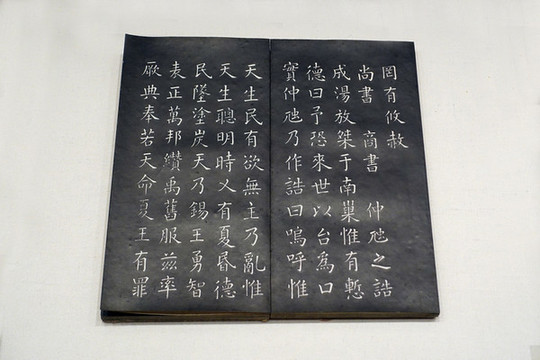 罔有攸赦
尚書 商書 仲虺之誥
成湯放桀于南巢惟有慙
德曰予恐來世以台為口
實仲虺乃作誥曰嗚呼惟
天生民有欲無主乃亂惟
天生聰明時乂有夏昬德
民墜塗炭天乃錫王勇智
表正萬邦纘禹舊服茲率
厥典奉若天命夏王有罪